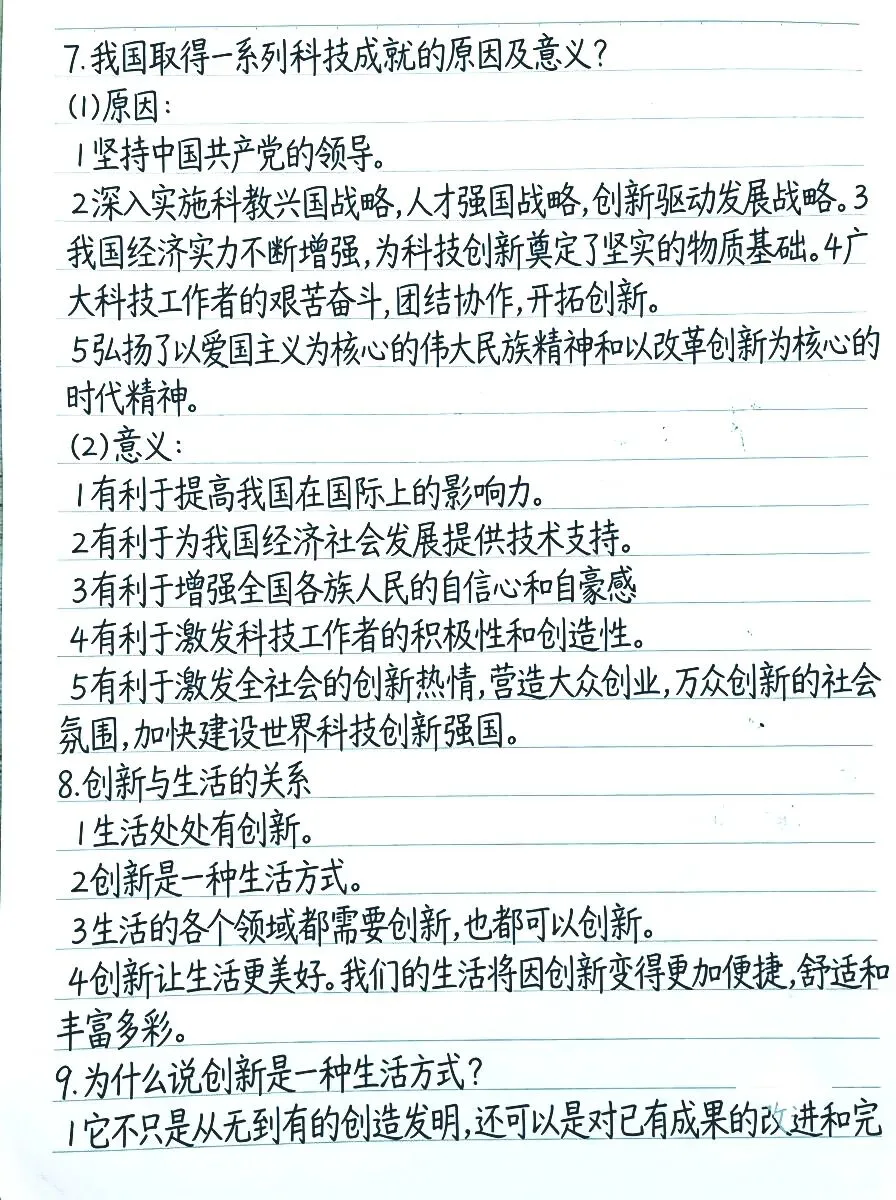 7.我国取得一系列科技成就的原因及意义?
(1)原因:
1坚持中国共产党的领导。
2深入实施科教兴国战略,人才强国战略,创新驱动发展战略。3
我国经济实力不断增强,为科技创新奠定了坚实的物质基础。4广
大科技工作者的艰苦奋斗,团结协作,开拓创新。
5弘扬了以爱国主义为核心的伟大民族精神和以改革创新为核心的
时代精神。
(2)意义:
1有利于提高我国在国际上的影响力。
2有利于为我国经济社会发展提供技术支持。
3有利于增强全国各族人民的自信心和自豪感
4有利于激发科技工作者的积极性和创造性。
5有利于激发全社会的创新热情,营造大众创业,万众创新的社会
氛围,加快建设世界科技创新强国。
8.创新与生活的关系
1生活处处有创新。
2创新是一种生活方式。
3生活的各个领域都需要创新,也都可以创新。
4创新让生活更美好。我们的生活将因创新变得更加便捷,舒适和
丰富多彩。
9.为什么说创新是一种生活方式?
1它不只是从无到有的创造发明,还可以是对已有成果的改进和完